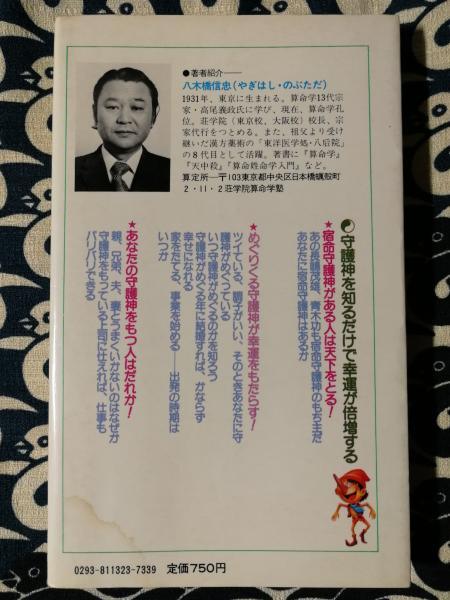 ●著者紹介──
八木橋信忠(やぎはし・のぶただ)
1931年、東京に生まれる。算命学13代宗
家・高尾義政氏に学び、現在、算命学孔
位。荘学院(東京校、大阪校)校長、宗
家代行をつとめる。また、祖父より受け
継いだ漢方薬術の「東洋医学処・八后院」
の8代目として活躍。著書に『算命学』
『天中殺』『算命姓命学入門』など。
算定所──〒103東京都中央区日本橋蠣殻町
2・11・2荘学院算命学塾
守護神を知るだけで幸運が倍増する
★宿命守護神がある人は天下をとる!
あの長嶋茂雄、青木功も宿命守護神のもち主だ
あなたに宿命守護神はあるか
★めぐりくる守護神が幸運をもたらす!
ツイている、調子がいい、そのときあなたに守
護神がめぐっている
いつ守護神がめぐるのかを知ろう
守護神がめぐる年に結婚すれば、かならず
幸せになれる
家をたてる、事業を始める──出発の時期は
いつか
★あなたの守護神をもつ人はだれか!
親、兄弟、夫、妻とうまくいかないのはなぜか
守護神をもっている上司に仕えれば、仕事も
バリバリできる
0293-811323-7339 定価750円